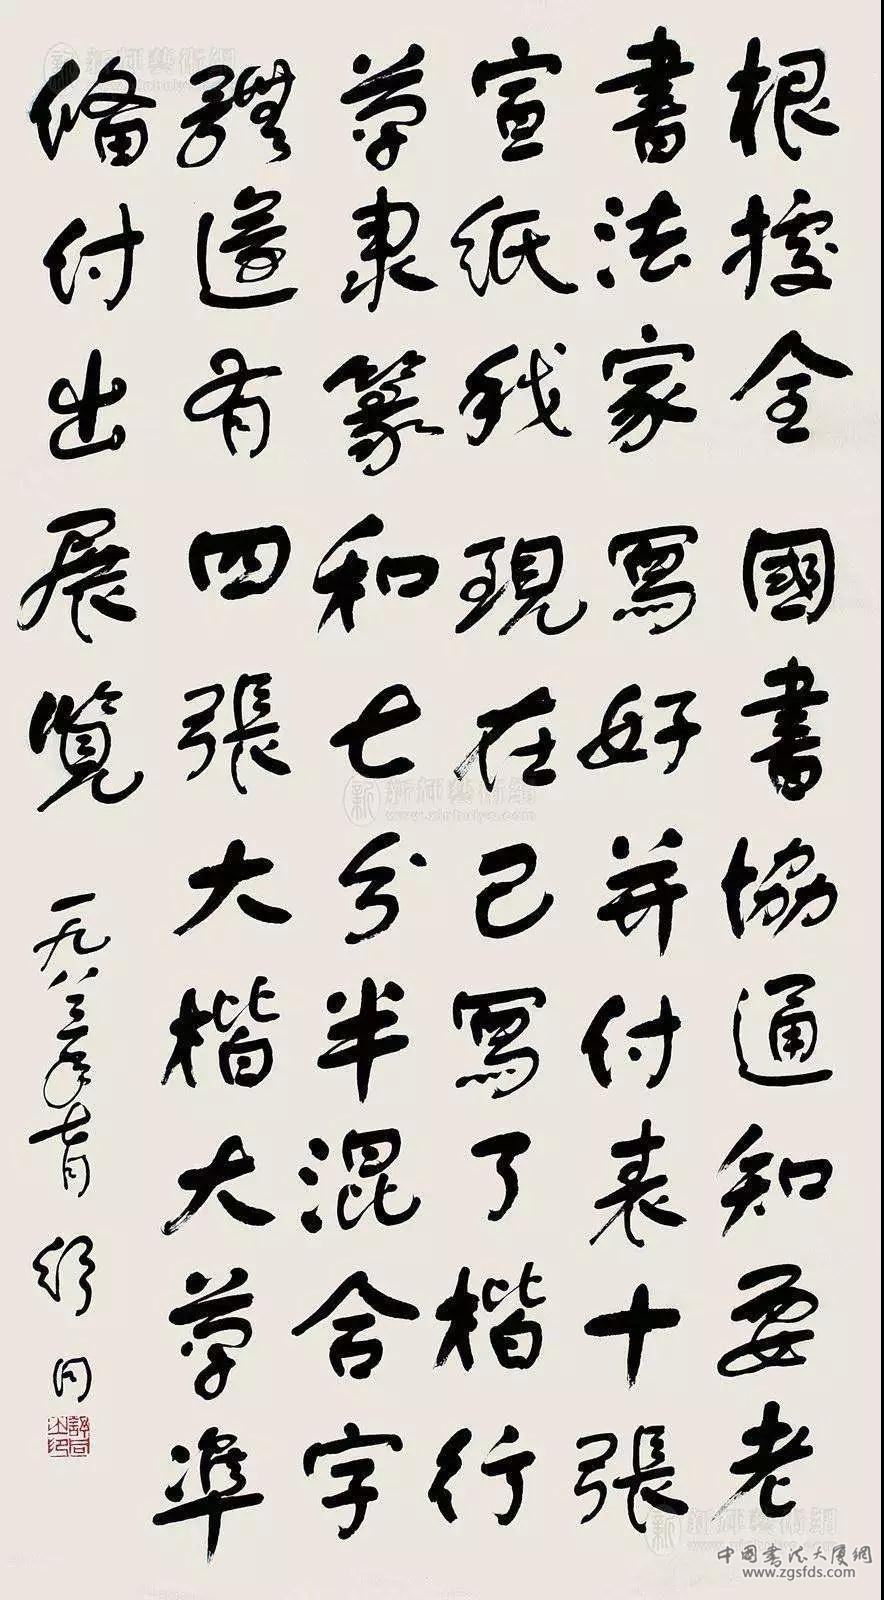 根據全國書協通知要老
書法家寫好并付表十張
宣紙我現在已寫了楷行
草隶篆和七分半混合字
體還有四張大楷大草準
備付出展覽
一九八三年七月
舒同
舒同之印
新浉藝術網
中国书法大厦網
www.zgsfds.com